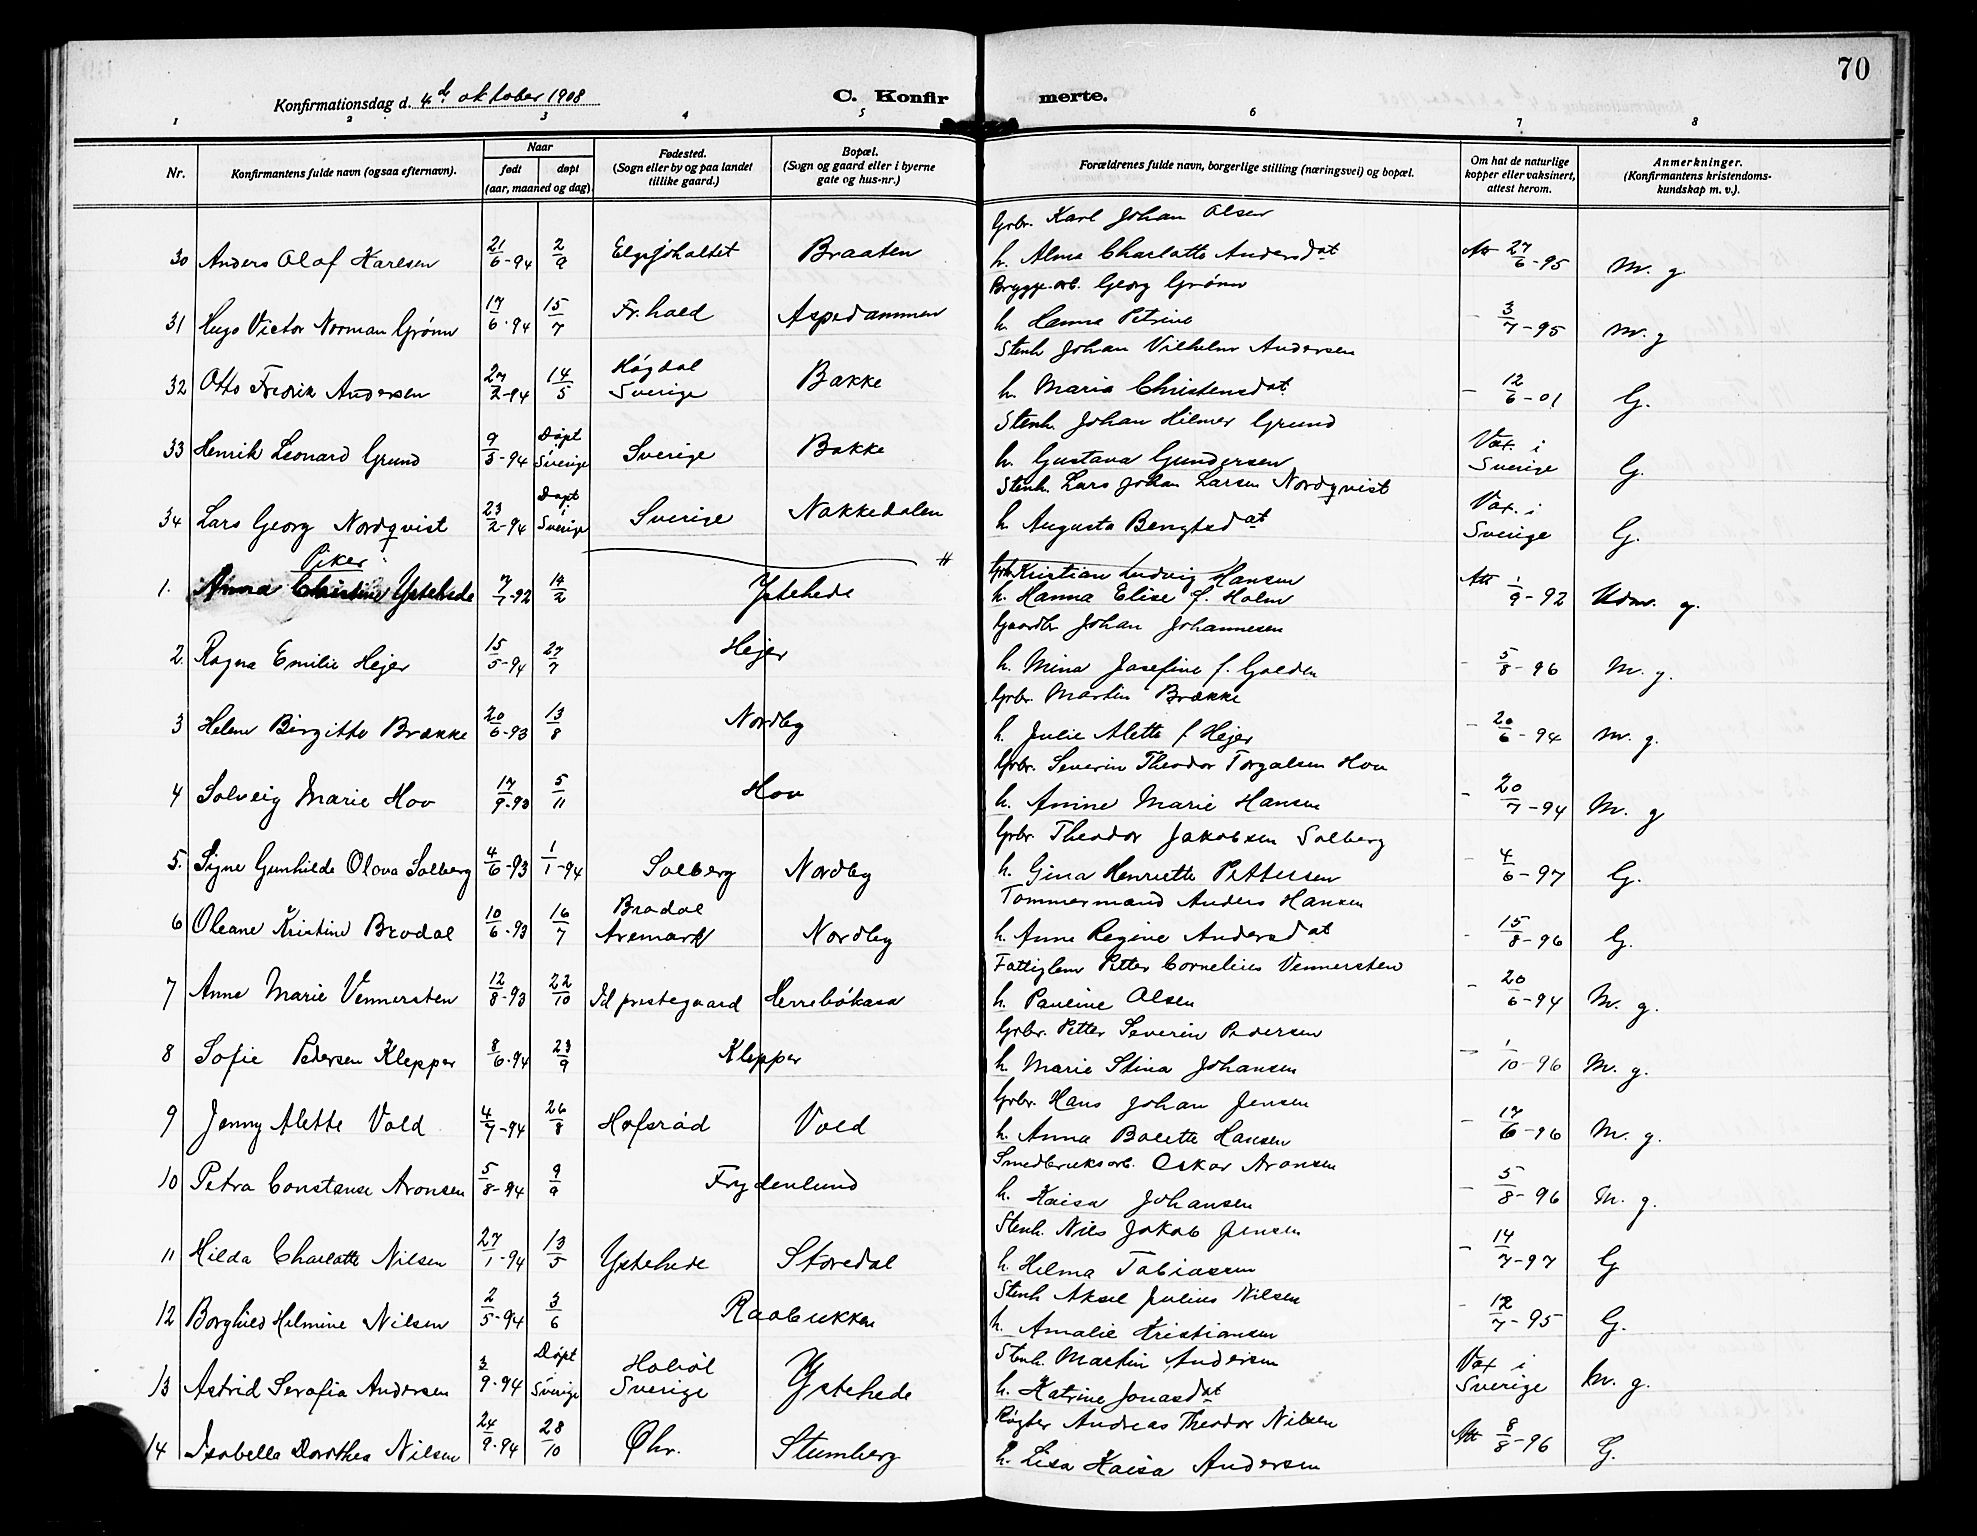 70
Konfirmationsdag d. 4de oktober 1908
C. Konfirmerte.
1 2 3 4 5 6 7 8
Nr. Konfirmantens fulde navn (ogsaa efternavn). Naar født døpt (aar, maaned og dag) Fødested. (Sogn eller by og paa landet tillike gaard.) Bopæl. (Sogn og gaard eller i byerne gate og hus-nr.) Forældrenes fulde navn, borgerlige stilling (næringsvei) og bopæl. Om hat de naturlige kopper eller vaksinert, attest herom. Anmerkninger. (Konfirmantens kristendomskundskap m. v.).
Grbr. Karl Johan Olsen
30 Anders Olaf Karlsen 21/6-94 2/9 Elgsjøhaltet Braaten h. Alma Charlotte Andersdat Att 27/6-95 M. g.
Brygge.arb. Georg Grønn
31 Hugo Victor Norman Grønn 17/6-94 15/7 Fr.hald Aspedammen h. Hanna Petrine - 3/7-95 M. g
Stenh. Johan Vilhelm Andersen
32 Otto Fredrik Andersen 27/2-94 14/5 Høgdal Sverige Bakke h. Maria Christensdat - 12/6-01 G.
Stenh. Johan Hilmer Grund
33 Henrik Leonard Grund 9/3-94 Døpt i Sverige Sverige Bakke h. Gustava Gundersen Vax. i Sverige G.
Stenh. Lars Johan Larsen Nordqvist
34 Lars Georg Nordqvist 23/2-94 Døpt i Sverige Sverige Nakkedalen h. Augusta Bengtsdat Vax. i Sverige G.
Piker
Grbr. Kristian Ludvig Hansen
1. Anna Christine Ystehede 7/7-92 14/2 Ystehede h. Hanna Elise f. Holm Att 1/9-92 Udm. g.
Gaardbr. Johan Johannesen
2. Ragna Emilie Hejer 15/5-94 27/7 Hejer h. Mina Josefine f. Golden - 5/8-96 M. g.
Grbr. Martin Brække
3 Helene Birgitte Brække 20/6-93 13/8 Nordby h. Julie Alette f Hejer - 20/6-94 M. g.
Grbr. Severin Theodor Torgalsen Hov
4 Solveig Marie Hov 17/9-93 5/11 Hov h. Anine Marie Hansen - 20/7-94 M. g
Grbr. Theodor Jakobsen Solberg
5. Signe Gunhilde Olova Solberg 4/6-93 1/1-94 Solberg Nordby h. Gina Henriette Pettersen - 4/6-97 G.
Tømmermand Anders Hansen
6 Oleane Kristine Brodal 10/6-93 16/7 Brodal Aremark Nordby h. Anne Regine Andersdat - 15/8-96 G.
Fattiglem Petter Cornelius Vennersten
7 Anna Marie Vennersten 12/8-93 22/10 Id prestegaard Herrebøkasa h. Pauline Olsen - 20/6-94 M. g.
Grbr. Petter Severin Pedersen
8 Sofie Pedersen Klepper 8/6-94 23/9 Klepper h. Marie Stina Johansen - 1/10-96 M. g.
Grbr. Hans Johan Jensen
9 Jenny Alette Vold 4/7-94 26/8 Hofsrød Vold h. Anna Bolette Hansen - 17/6-96 M. g.
Smedbruksarb. Oskar Aronsen
10 Petra Constanse Aronsen 5/8-94 9/9 Frydenlund h. Kaisa Johansen - 5/8-96 M. g.
Stenh. Nils Jakob Jensen
11 Hilda Charlotte Nilsen 27/1-94 13/5 Ystehede Storedal h. Hilma Tobiassen - 14/7-97 G
Stenh Aksel Julius Nilsen
12 Borghild Helmine Nilsen 2/5-94 3/6 Raabukken h. Amalie Kristiansen - 12/7-95 G.
Stenh. Martin Andersen
13 Astrid Serafia Andersen 3/9-94 Døpt i Sverige Holøl Sverige Ystehede h. Katrine Jonasdat Vax i Sverige M. g.
Røgter Andreas Theodor Nilsen
14 Isabella Dorothea Nilsen 24/9-94 28/10 Øhr. Stumberg h. Lisa Kaisa Andersen Att 8/8-96 G.